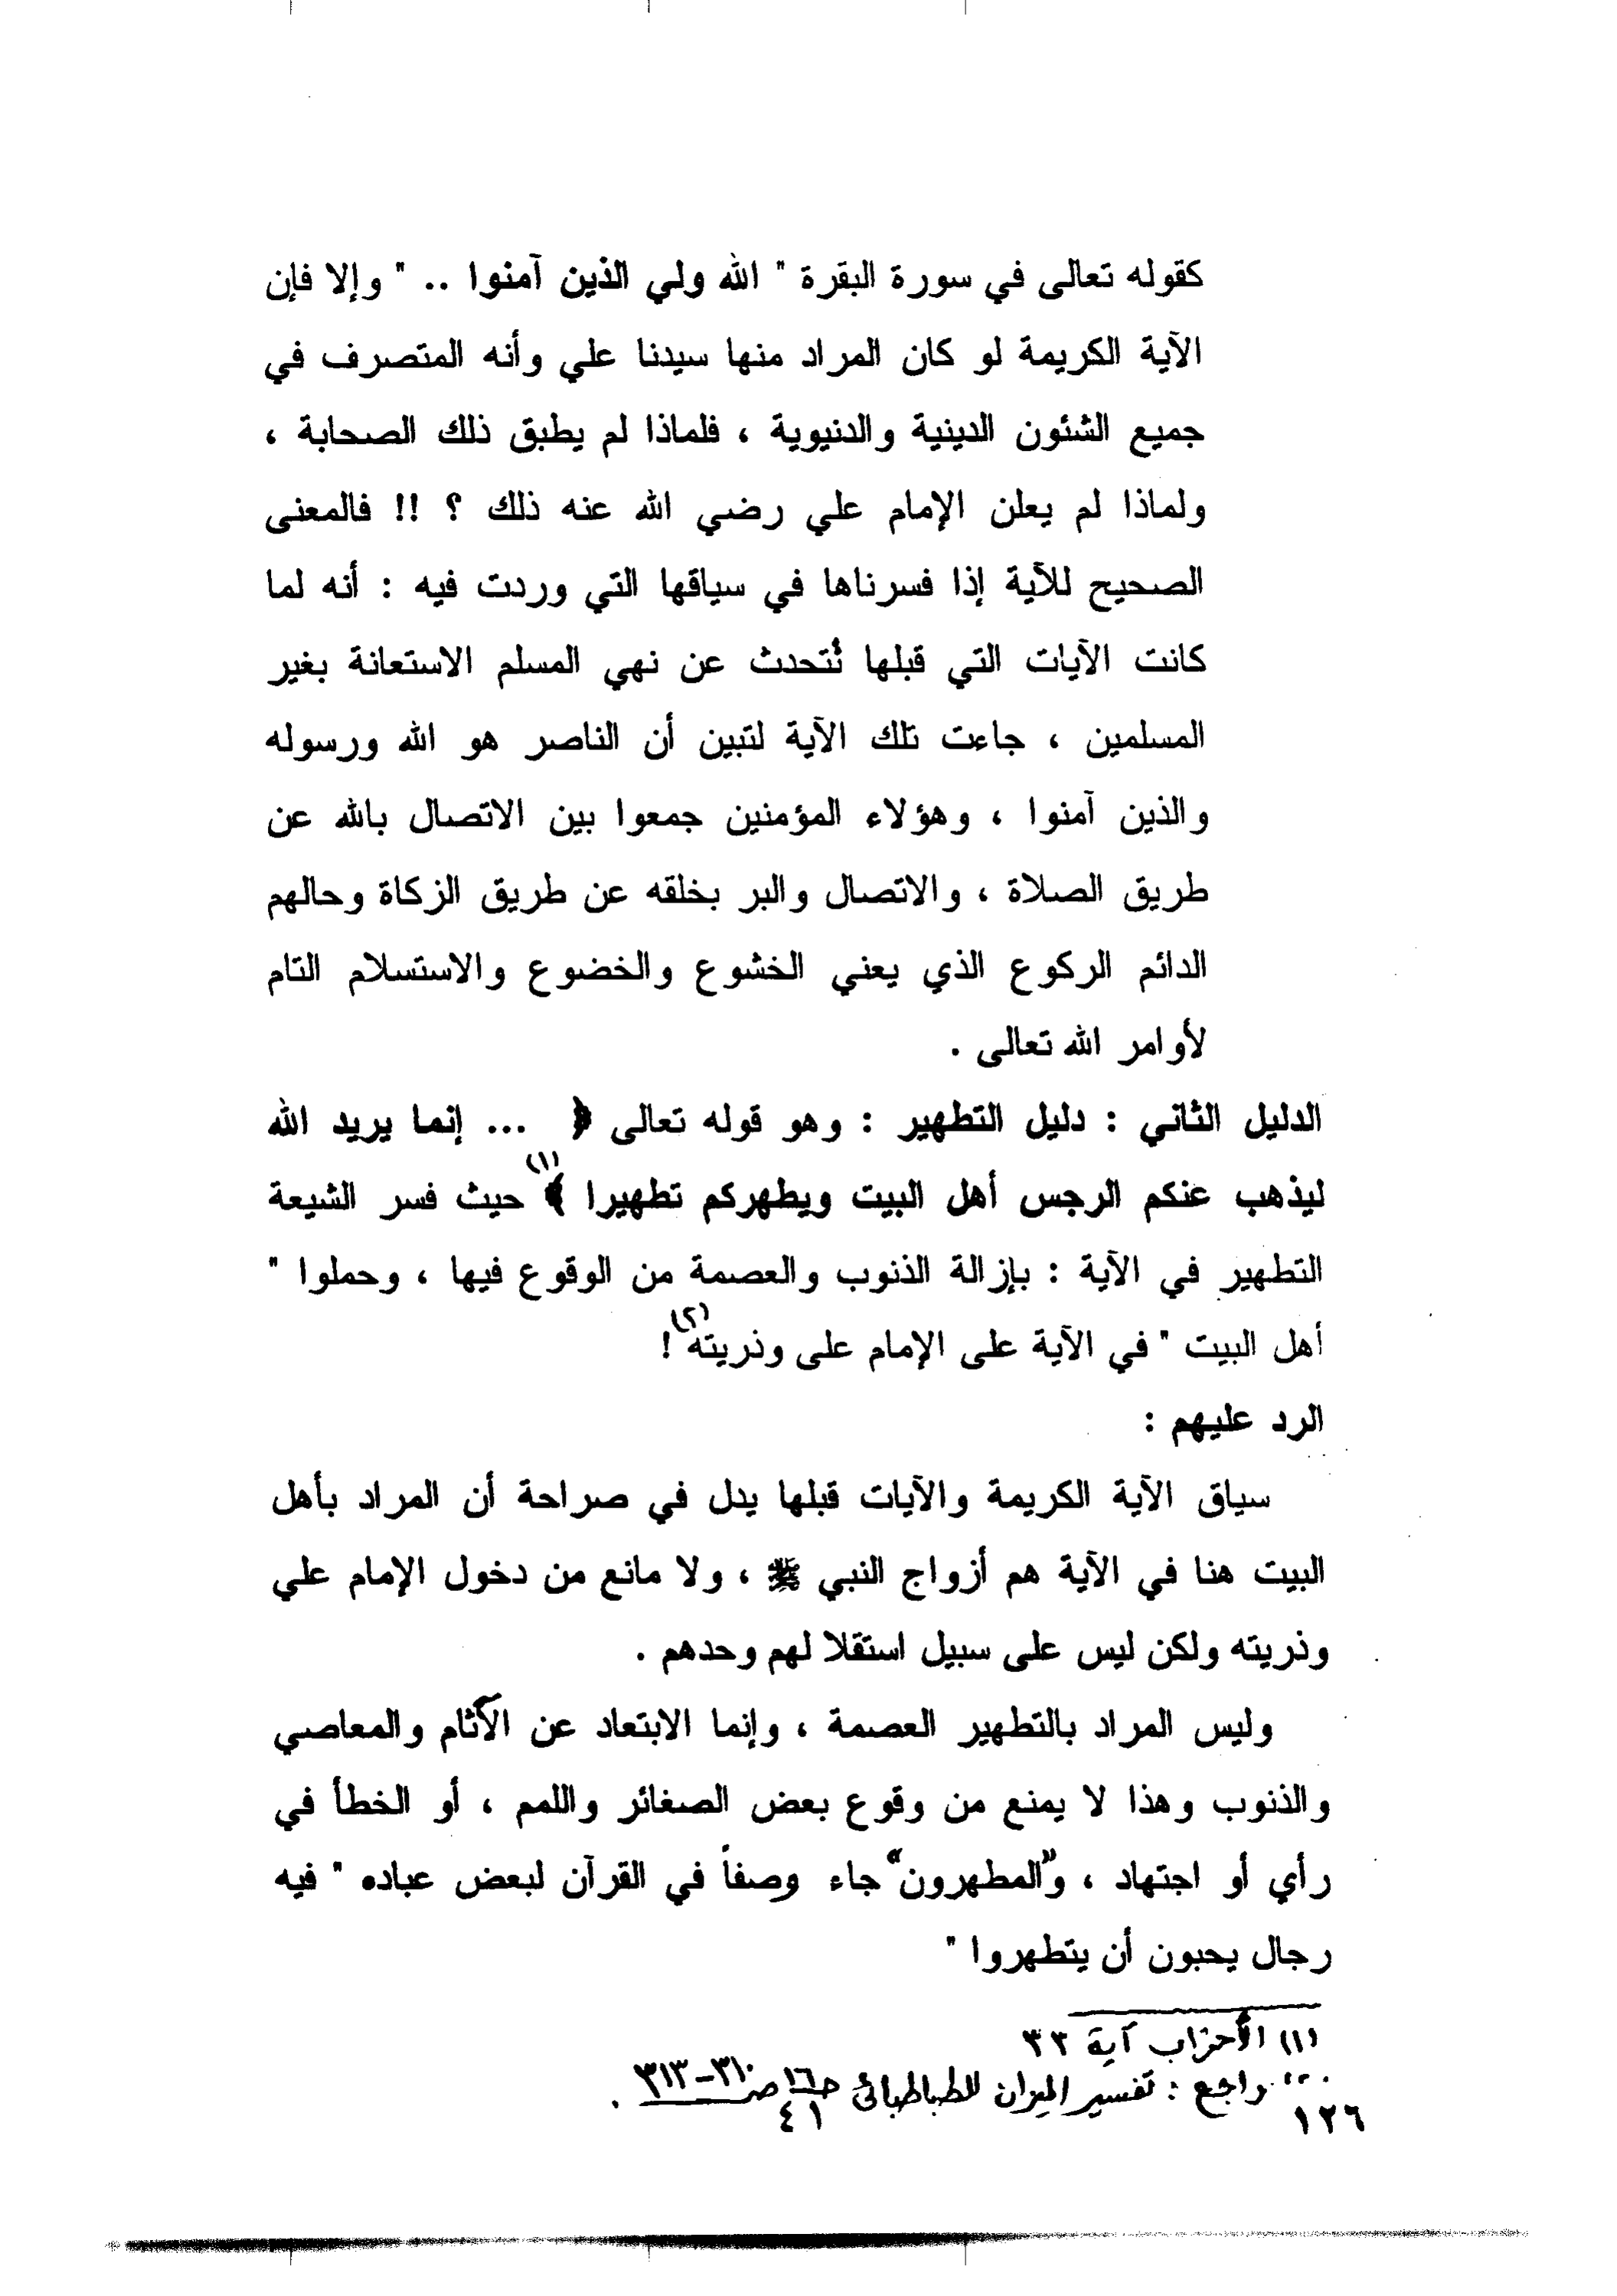 كقوله تعالى في سورة البقرة " الله ولي الذين آمنوا .. " وإلا فإن
الآية الكريمة لو كان المراد منها سيدنا علي وأنه المتصرف في
جميع الشئون الدينية والدنيوية ، فلماذا لم يطبق ذلك الصحابة ،
ولماذا لم يعلن الإمام علي رضي الله عنه ذلك ؟ !! فالمعنى
الصحيح للآية إذا فسرناها في سياقها التي وردت فيه : أنه لما
كانت الآيات التي قبلها تُتحدث عن نهي المسلم الاستعانة بغير
المسلمين ، جاءت تلك الآية لتبين أن الناصر هو الله ورسوله
والذين آمنوا ، وهؤلاء المؤمنين جمعوا بين الاتصال بالله عن
طريق الصلاة ، والاتصال والبر بخلقه عن طريق الزكاة وحالهم
الدائم الركوع الذي يعني الخشوع والخضوع والاستسلام التام
لأوامر الله تعالى .
الدليل الثاني : دليل التطهير : وهو قوله تعالى ﴿ ... إنما يريد الله
ليذهب عنكم الرجس أهل البيت ويطهركم تطهيرا ﴾(١) حيث فسر الشيعة
التطهير في الآية : بإزالة الذنوب والعصمة من الوقوع فيها ، وحملوا "
أهل البيت " في الآية على الإمام على وذريته(٢) !
الرد عليهم :
سياق الآية الكريمة والآيات قبلها يدل في صراحة أن المراد بأهل
البيت هنا في الآية هم أزواج النبي ﷺ ، ولا مانع من دخول الإمام علي
وذريته ولكن ليس على سبيل استقلا لهم وحدهم .
وليس المراد بالتطهير العصمة ، وإنما الابتعاد عن الآثام والمعاصي
والذنوب وهذا لا يمنع من وقوع بعض الصغائر واللمم ، أو الخطأ في
رأي أو اجتهاد ، و"المطهرون" جاء وصفاً في القرآن لبعض عباده " فيه
رجال يحبون أن يتطهروا "
(١) الأحزاب آية ٣٣
راجع : تفسير الميزان للطباطبائي حـ ١٦ صـ ٣١٠-٣١٣ .
١٢٦
٤١